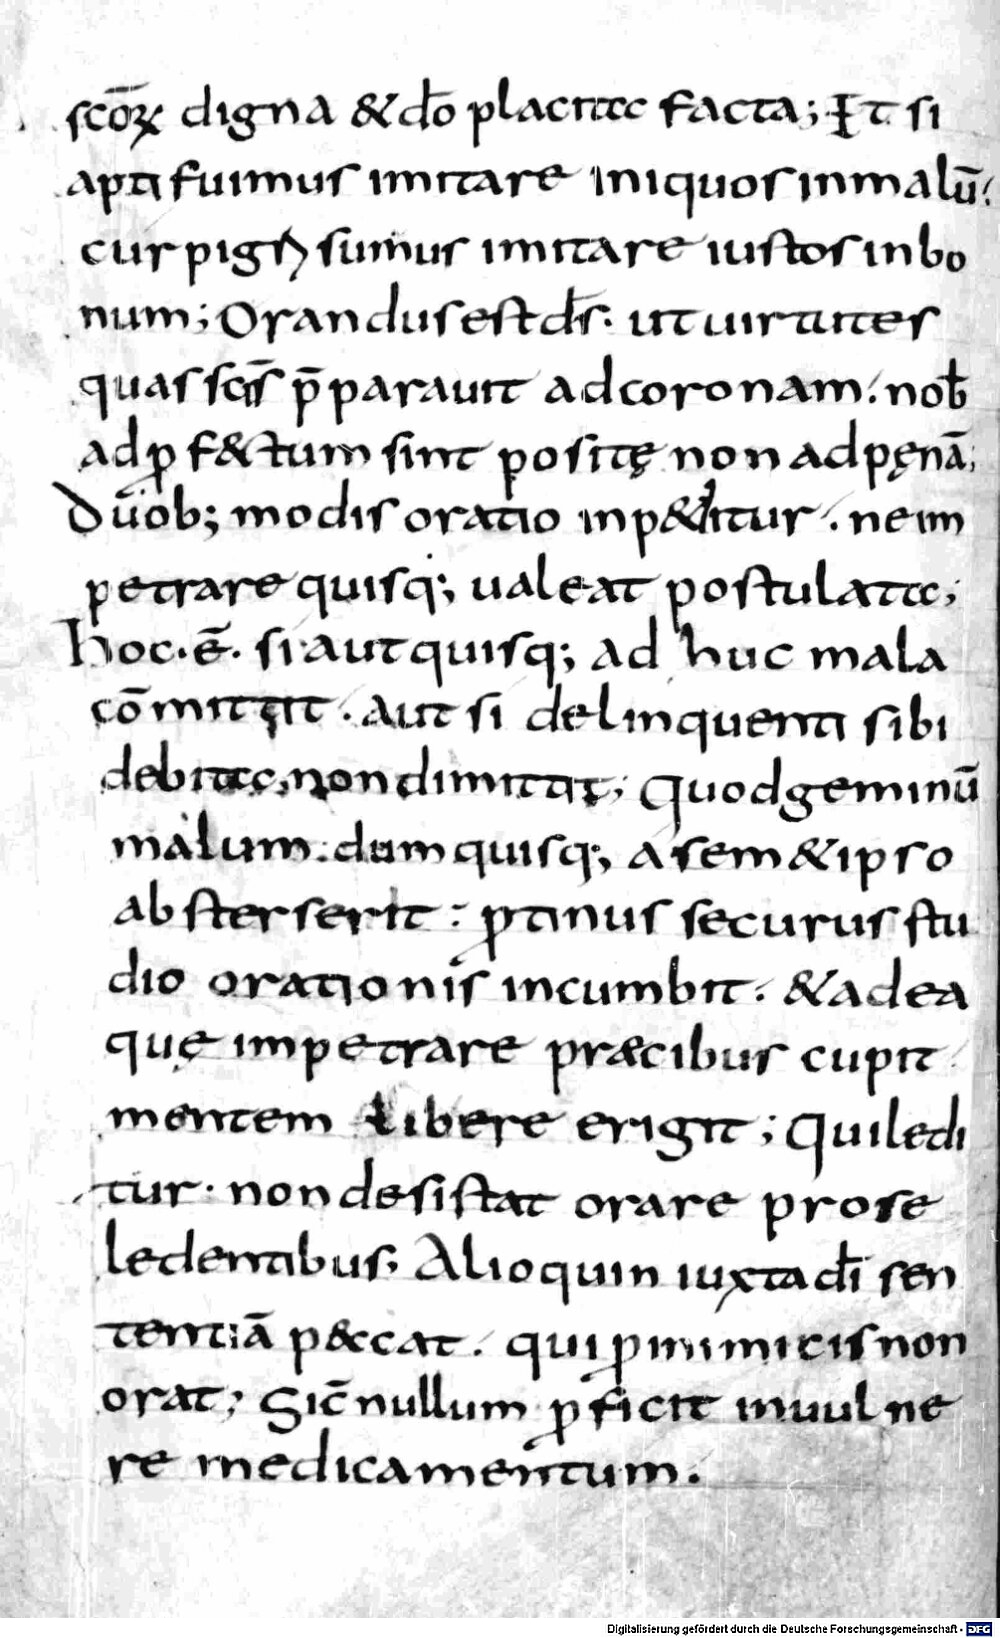 scōꝝ digna & dō placita facta; Et si
apti fuimus imitare iniquos inmalū.
cur pigri sumus imitare iustos inbo
num; Orandus est ds̄. ut uirtutes
quas scīs p̄parauit ad coronam. nob̄
ad ꝓf&tum sint positę non ad pęnā;
Duob; modis oratio inp&ditur. ne im
petrare quisq; ualeat postulata;
hoc. ē. si aut quisq; ad huc mala
cōmittit. aut si delinquenti sibi
debita non dimittat; Quod geminū
malum. dum quisq; a sem&ipso
absterserit. ꝓtinus securus stu
dio orationis incumbit. & ad ea
quę impetrare præcibus cupit.
mentem libere erigit; Qui ledi
tur. non desistat orare pro se
ledentibus; Alioquin iuxta dī sen
tentiā peccat. qui ꝓ inimicis non
orat; Sic̄ nullum ꝓficit in uulne
re medicamentum.
Digitalisierung gefördert durch die Deutsche Forschungsgemeinschaft - DFG